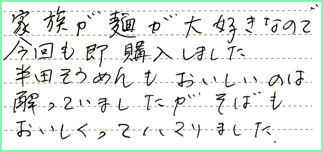 家族が麺が大好きなので
今回も即購入しました
半田そうめんもおいしいのは
解っていましたがそばも
おいしくってハマりました